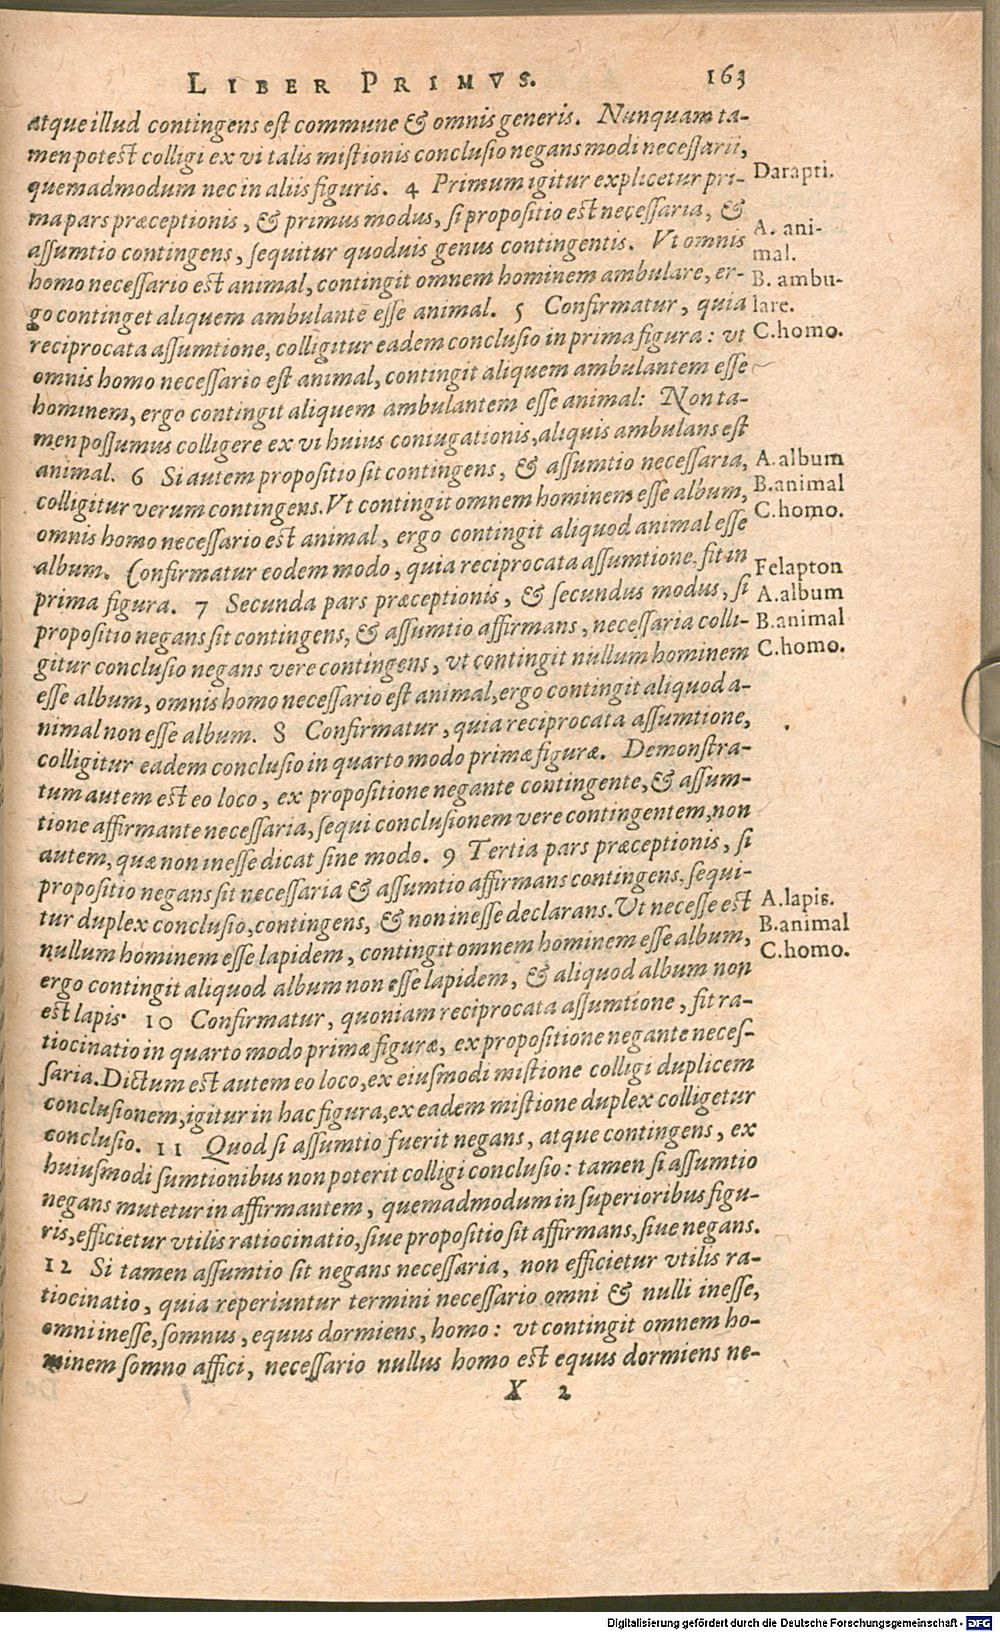 LIBER PRIMVS. 163
atque illud contingens est commune & omnis generis. Nunquam ta-
men potest colligi ex vi talis mistionis conclusio negans modi necessarii,
quemadmodum nec in aliis figuris. 4 Primum igitur explicetur pri-
ma pars præceptionis, & primus modus, si propositio est necessaria, &
assumtio contingens, sequitur quoduis genus contingentis. Vt omnis
homo necessario est animal, contingit omnem hominem ambulare, er-
go continget aliquem ambulantē esse animal. 5 Confirmatur, quia
reciprocata assumtione, colligitur eadem conclusio in prima figura: vt
omnis homo necessario est animal, contingit aliquem ambulantem esse
hominem, ergo contingit aliquem ambulantem esse animal: Non ta-
men possumus colligere ex vi huius coniugationis, aliquis ambulans est
animal. 6 Si autem propositio sit contingens, & assumtio necessaria,
colligitur verum contingens. Vt contingit omnem hominem esse album,
omnis homo necessario est animal, ergo contingit aliquod animal esse
album. Confirmatur eodem modo, quia reciprocata assumtione, fit in
prima figura. 7 Secunda pars præceptionis, & secundus modus, si
propositio negans sit contingens, & assumtio affirmans, necessaria colli-
gitur conclusio negans vere contingens, vt contingit nullum hominem
esse album, omnis homo necessario est animal, ergo contingit aliquod a-
nimal non esse album. 8 Confirmatur, quia reciprocata assumtione,
colligitur eadem conclusio in quarto modo primæ figuræ. Demonstra-
tum autem est eo loco, ex propositione negante contingente, & assum-
tione affirmante necessaria, sequi conclusionem vere contingentem, non
autem, quæ non inesse dicat sine modo. 9 Tertia pars præceptionis, si
propositio negans sit necessaria & assumtio affirmans contingens, sequi-
tur duplex conclusio, contingens, & non inesse declarans. Ut necesse est
nullum hominem esse lapidem, contingit omnem hominem esse album,
ergo contingit aliquod album non esse lapidem, & aliquod album non
est lapis. 10 Confirmatur, quoniam reciprocata assumtione, fit ra-
tiocinatio in quarto modo primæ figuræ, ex propositione negante neces-
saria. Dictum est autem eo loco, ex eiusmodi mistione colligi duplicem
conclusionem, igitur in hac figura, ex eadem mistione duplex colligetur
conclusio. 11 Quod si assumtio fuerit negans, atque contingens, ex
huiusmodi sumtionibus non poterit colligi conclusio: tamen si assumtio
negans mutetur in affirmantem, quemadmodum in superioribus figu-
ris, efficietur vtilis ratiocinatio, siue propositio sit affirmans, siue negans.
12 Si tamen assumtio sit negans necessaria, non efficietur vtilis ra-
tiocinatio, quia reperiuntur termini necessario omni & nulli inesse,
omni inesse, somnus, equus dormiens, homo: vt contingit omnem ho-
minem somno affici, necessario nullus homo est equus dormiens ne-
X 2
Darapti.
A. ani-
mal.
B. ambu-
lare.
C. homo.
A. album
B. animal
C. homo.
Felapton
A. album
B. animal
C. homo.
A. lapis.
B. animal
C. homo.
Digitalisierung gefördert durch die Deutsche Forschungsgemeinschaft - DFG